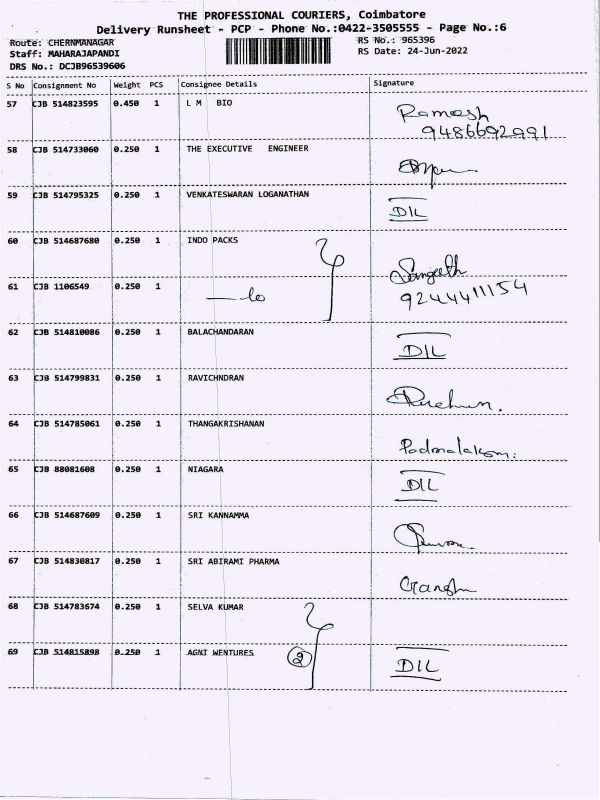 THE PROFESSIONAL COURIERS, Coimbatore
Delivery Runsheet - PCP - Phone No.:0422-3505555 - Page No.:6
Route: CHERNMANAGAR RS No.: 965396
Staff: MAHARAJAPANDI RS Date: 24-Jun-2022
DRS No.: DCJB96539606
S No Consignment No Weight PCS Consignee Details Signature
57 CJB 514823595 0.450 1 L M BIO Ramesh
9486692991
58 CJB 514733060 0.250 1 THE EXECUTIVE ENGINEER
59 CJB 514795325 0.250 1 VENKATESWARAN LOGANATHAN DIL
60 CJB 514687680 0.250 1 INDO PACKS Sangeeth
61 CJB 1106549 0.250 1 9244411154
62 CJB 514810086 0.250 1 BALACHANDARAN DIL
63 CJB 514799831 0.250 1 RAVICHNDRAN
64 CJB 514785061 0.250 1 THANGAKRISHANAN
65 CJB 88081608 0.250 1 NIAGARA DIL
66 CJB 514687609 0.250 1 SRI KANNAMMA
67 CJB 514830817 0.250 1 SRI ABIRAMI PHARMA
68 CJB 514783674 0.250 1 SELVA KUMAR
69 CJB 514815898 0.250 1 AGNI WENTURES 2 DIL